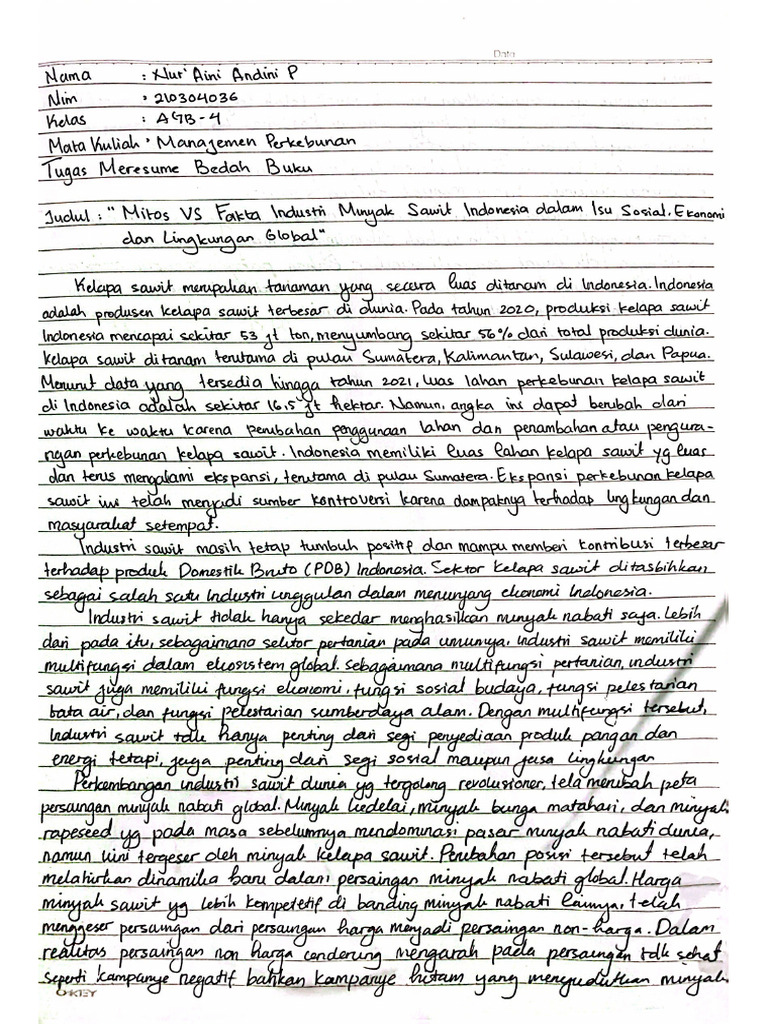 Date
Nama : Nur'Aini Andini P
Nim : 210304036
Kelas : AGB-4
Mata Kuliah : Manajemen Perkebunan
Tugas Meresume Bedah Buku
Judul : "Mitos VS Fakta Industri Minyak Sawit Indonesia dalam Isu Sosial, Ekonomi
dan Lingkungan Global"
Kelapa sawit merupakan tanaman yang secara luas ditanam di Indonesia. Indonesia
adalah produsen kelapa sawit terbesar di dunia. Pada tahun 2020, produksi kelapa sawit
Indonesia mencapai sekitar 53 jt ton, menyumbang sekitar 56% dari total produksi dunia.
Kelapa sawit ditanam terutama di pulau Sumatera, Kalimantan, Sulawesi, dan Papua.
Menurut data yang tersedia hingga tahun 2021, luas lahan perkebunan kelapa sawit
di Indonesia adalah sekitar 16.5 jt Hektar. Namun, angka ini dapat berubah dari
waktu ke waktu karena perubahan penggunaan lahan dan penambahan atau pengura-
ngan perkebunan kelapa sawit. Indonesia memiliki luas lahan kelapa sawit yg luas
dan terus mengalami ekspansi, terutama di pulau Sumatera. Ekspansi perkebunan kelapa
sawit ini telah menjadi sumber kontroversi karena dampaknya terhadap lingkungan dan
masyarakat setempat.
Industri sawit masih tetap tumbuh positif dan mampu memberi kontribusi terbesar
terhadap produk Domestik Bruto (PDB) Indonesia. Sektor kelapa sawit ditasbihkan
sebagai salah satu Industri unggulan dalam menunjang ekonomi Indonesia.
Industri sawit tidak hanya sekedar menghasilkan minyak nabati saja. Lebih
dari pada itu, sebagaimana sektor pertanian pada umumnya, industri sawit memiliki
multifungsi dalam ekosistem global. Sebagaimana multifungsi pertanian, industri
sawit juga memiliki fungsi ekonomi, fungsi sosial budaya, fungsi pelestarian
tata air, dan fungsi pelestarian sumberdaya alam. Dengan multifungsi tersebut,
Industri sawit tdk hanya penting dari segi penyediaan produk pangan dan
energi tetapi, juga penting dari segi sosial maupun jasa lingkungan
Perkembangan industri sawit dunia yg tergolong revolusioner, tela merubah peta
persaingan minyak nabati global. Minyak kedelai, minyak bunga matahari, dan minyak
rapeseed yg pada masa sebelumnya mendominasi pasar minyak nabati dunia,
namun kini tergeser oleh minyak kelapa sawit. Perubahan posisi tersebut telah
melahirkan dinamika baru dalam persaingan minyak nabati global. Harga
minyak sawit yg lebih kompetetif di banding minyak nabati lainnya, telah
menggeser persaingan dari persaingan harga menjadi persaingan non-harga. Dalam
realitas persaingan non harga cenderung mengarah pada persaingan tdk sehat
seperti kampanye negatif bahkan kampanye hitam yang menyudutkan minyak